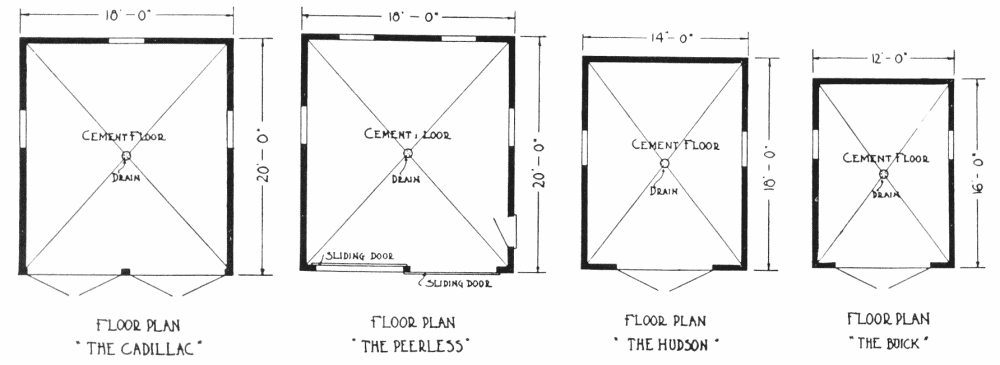 18'-0"
20'-0"
CEMENT FLOOR
DRAIN
FLOOR PLAN
"THE CADILLAC"
18'-0"
20'-0"
CEMENT LOOR
DRAIN
SLIDING DOOR
SLIDING DOOR
FLOOR PLAN
"THE PEERLESS"
14'-0"
18'-0"
CEMENT FLOOR
DRAIN
FLOOR PLAN
"THE HUDSON"
12'-0"
16'-0"
CEMENT FLOOR
DRAIN
FLOOR PLAN
"THE BUICK"